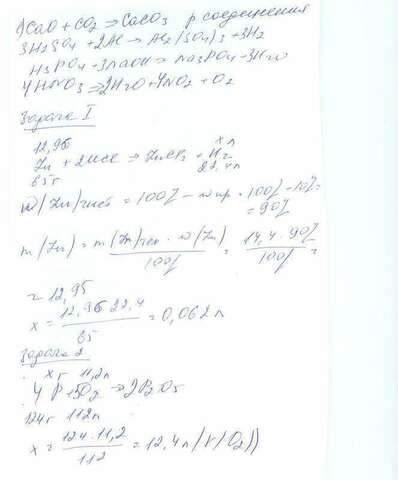 CaO + CO2 => CaCO3 р. соединения
3H2SO4 + 2Al => Al2(SO4)3 + 3H2
H3PO4 + 3NaOH => Na3PO4 + 3H2O
4HNO3 => 2H2O + 4NO2 + O2
Задача I
12,96 x л
Zn + 2HCl => ZnCl2 + H2
65г 22,4л
w(Zn)чист = 100% - w пр = 100% - 10% =
= 90%
m(Zn) = m(Zn)тех · w(Zn) / 100% = 14,4 · 90% / 100% =
= 12,96
x = 12,96 · 22,4 / 65 = 0,062 л
Задача 2
x г 11,2л
4P + 5O2 => 2P2O5
124г 112л
x = 124 · 11,2 / 112 = 12,4 л (V(O2))